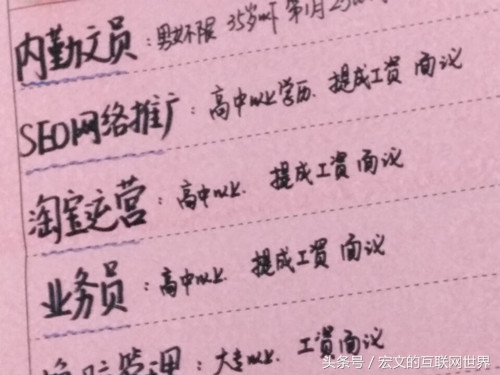 内勤文员：男女不限 35岁以下 第1月25
SEO网络推广：高中以上学历、提成工资 面议
淘宝运营：高中以上、提成工资 面议
业务员：高中以上、提成工资 面议
管理：大专以上、工资面议
头条号／宏文的互联网世界